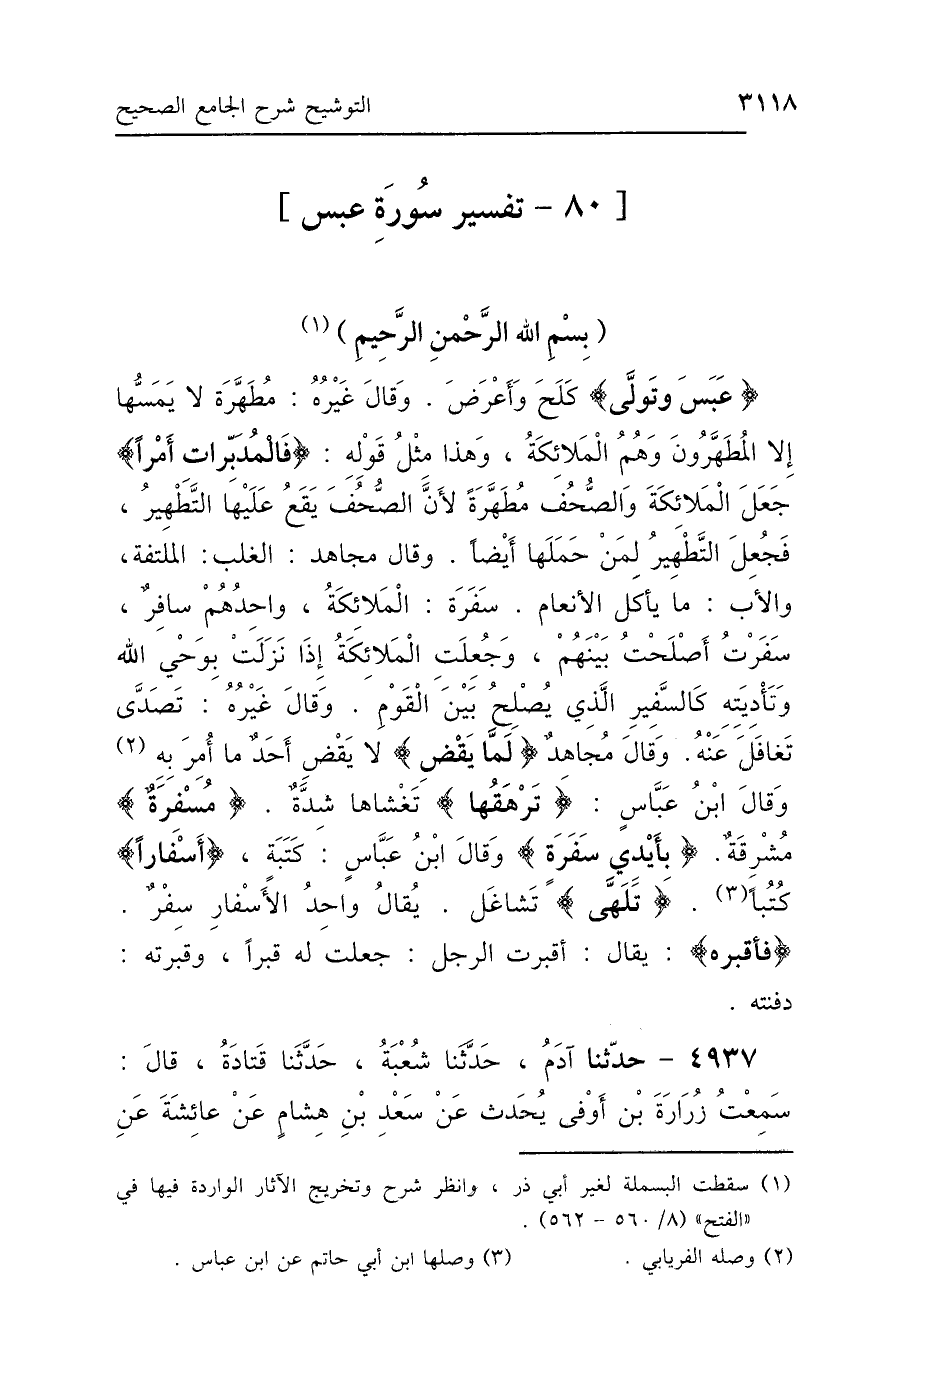 ٣١١٨ التوشيح شرح الجامع الصحيح
[ ٨٠ - تفسير سُورَةِ عبس ]
( بِسْمِ الله الرَّحْمنِ الرَّحِيمِ ) (١)
﴿ عَبَسَ وَتَولَّى﴾ كَلَحَ وَأَعْرَضَ . وَقَالَ غَيْرُهُ : مُطَهَّرَة لا يَمَسُّها
إلا المُطَهَّرُونَ وَهُمُ الْمَلائِكَةُ ، وَهذا مثْلُ قَوْلِهِ : ﴿فَالْمُدَبِّرات أَمْراً﴾
جَعَلَ الْمَلائِكَةَ وَالصُّحُف مُطَهَّرَةً لأنَّ الصُّحُفَ يَقَعُ عَلَيْها التَّطْهِيرُ ،
فَجُعِلَ التَّطْهِيرُ لِمَنْ حَمَلَها أَيْضاً . وقال مجاهد : الغلب: الملتفة،
والأب : ما يأكل الأنعام . سَفَرَة : الْمَلائِكَةُ ، واحِدُهُمْ سافِرٌ ،
سَفَرْتُ أَصْلَحْتُ بَيْنَهُمْ ، وَجُعِلَتِ الْمَلائِكَةُ إِذَا نَزَلَتْ بِوَحْيِ الله
وَتَأْدِيَتِهِ كَالسَّفِيرِ الَّذِي يُصْلِحُ بَيْنَ الْقَوْمِ . وَقَالَ غَيْرُهُ : تَصَدَّى
تَغافَلَ عَنْهُ. وَقَالَ مُجاهِدٌ ﴿ لَمَّا يَقْضِ ﴾ لا يَقْضِ أَحَدٌ ما أُمِرَ بِهِ (٢)
وَقَالَ ابْنُ عَبَّاسٍ : ﴿ تَرْهَقُها ﴾ تَغْشاها شدَّةٌ . ﴿ مُسْفِرَةٌ ﴾
مُشْرِقَةٌ. ﴿ بأَيْدي سَفَرَةٍ ﴾ وَقَالَ ابْنُ عَبَّاسٍ : كَتَبَةٍ ، ﴿أَسْفاراً﴾
كُتُباً(٣) . ﴿ تَلَهَّى ﴾ تَشاغَل . يُقالُ واحِدُ الأَسْفارِ سِفْرٌ .
﴿فأقبره﴾ : يقال : أقبرت الرجل : جعلت له قبراً ، وقبرته :
دفنته .
٤٩٣٧ - حدّثنا آدَمُ ، حَدَّثَنا شُعْبَةُ ، حَدَّثَنا قَتادَةُ ، قالَ :
سَمِعْتُ زُرَارَةَ بْن أَوْفى يُحَدِث عَنْ سَعْدِ بْنِ هِشامٍ عَنْ عائِشَةَ عَنِ
(١) سقطت البسملة لغير أبي ذر ، وانظر شرح وتخريج الآثار الواردة فيها في
«الفتح» (٨/ ٥٦٠ - ٥٦٢) .
(٢) وصله الفريابي . (٣) وصلها ابن أبي حاتم عن ابن عباس .